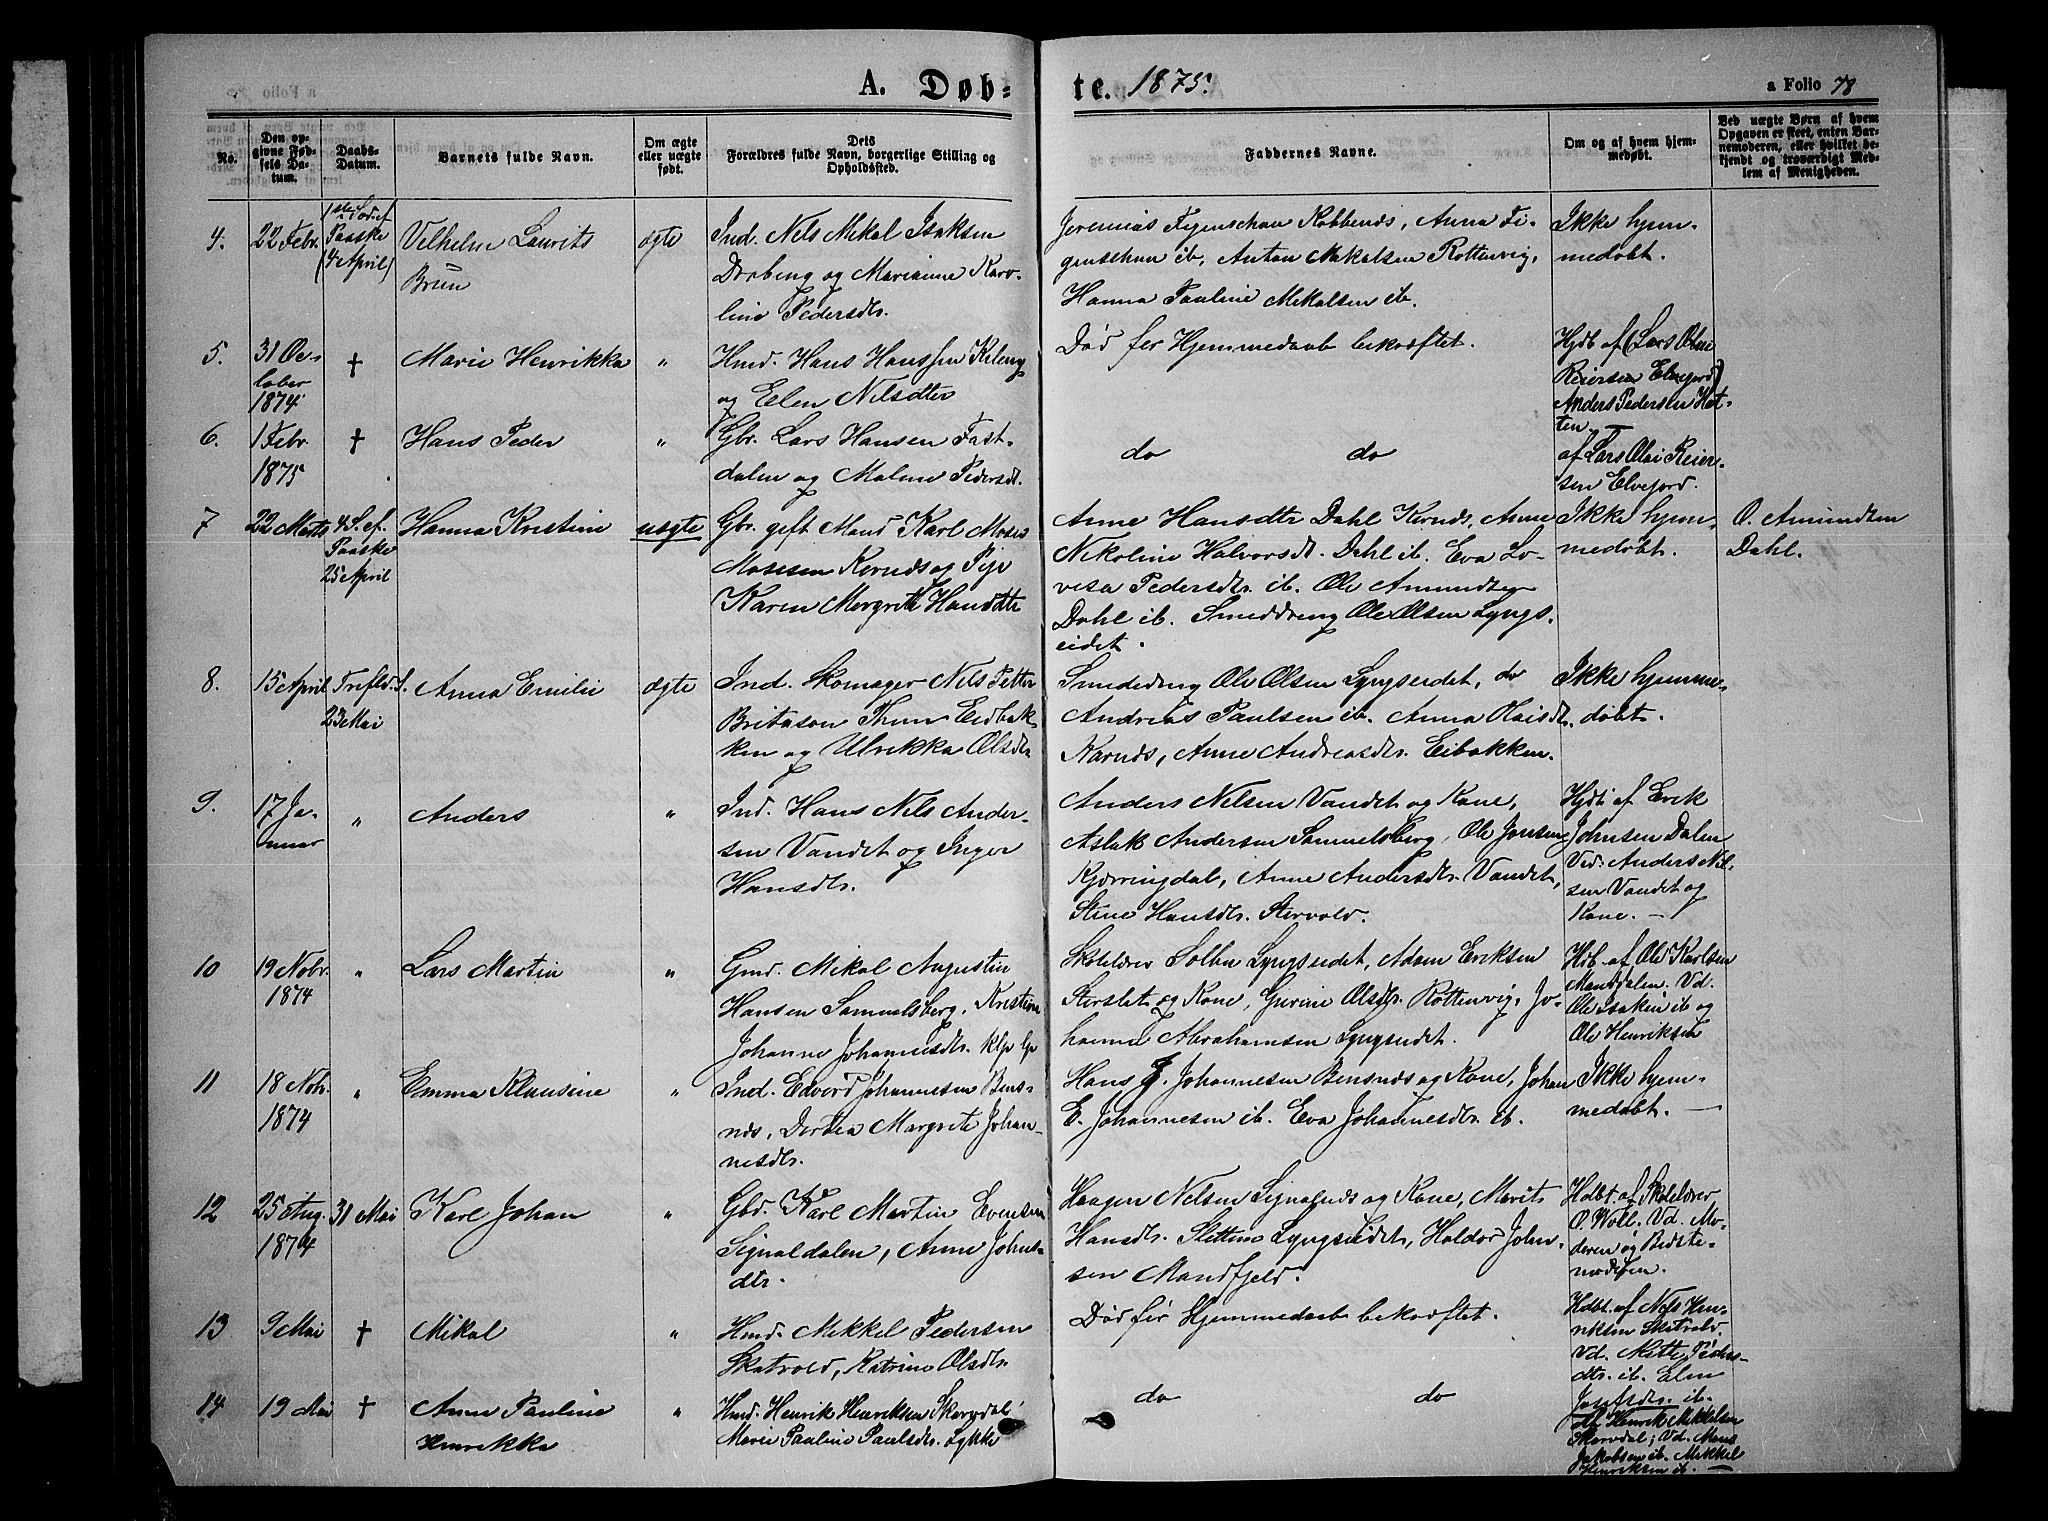 A. Døb- te. 1875.
a Folio 78
No.
Den op-
givne Fød-
sels Da-
tum.
Daabs-
Datum.
Barnets fulde Navn.
Om ægte
eller uægte
født.
Dets
Forældres fulde Navn, borgerlige Stilling og
Opholdssted.
Faddernes Navne.
Om og af hvem hjem-
medøbt.
Ved uægte Børn af hvem
Opgaven er skeet, enten Bar-
nemoderen, eller hvilket be-
kjendt og troværdigt Med-
lem af Menigheden.
4.
22 Febr.
Paaske
(4 April)
Vilhelm Laurits
Brun
ægte
Ind. Nels Mikal Isaksen
og Marianne Karo-
line Pedersdtr.
Jeremias Figenschau Kobbenes, Anna Fi-
genschau ib, Anton Mikalsen Rottenvig,
Hanna Pauline Mikalsen ib.
Ikke hjem-
medøbt.
5.
31 Oc-
tober
1874
†
Marie Henrikka
"
Hmd. Hans Hanssen Kileng
og Ellen Nilsdtter
Død før Hjemmedaab bekræftet.
Hjdb. af (Lars Olsen
Reiersen Elvejord)
Anders Pedersen Hat-
ten.
6.
1 Febr.
1875
†
Hans Peder
"
Gbr. Lars Hansen Fast-
dalen og Malene Pedersdt.
do do
af Lars Olai Reier-
sen Elvejord.
7
22 Marts
4 S. ef.
Paaske
25 April
Hanna Kristine
uægte
Gbr. gift Mand Karl Moses
Mosesen Kornæs og Pige
Karen Margrete Hansdtr
Anne Hansdtr Dahl Kornæs, Anne
Nikoline Halvorsdt. Dahl ib. Eva Lo-
visa Pedersdtr. ib. Ole Amundsen
Dahl ib. Smeddreng Ole Olsen Lyngs-
eidet.
Ikke hjem-
medøbt.
O. Amundsen
Dahl.
8.
15 April
23 Mai
Anna Emilie
ægte
Ind. Skomager Nels Petter
Britason Thun Eidbak-
ken og Ulrikka Olsdtr
Smeddreng Ole Olsen Lyngseidet, do
Andreas Paulsen ib. Anna Olaisdt.
Karnæs, Anne Andreasdtr. Eibakken.
Ikke hjemme-
døbt.
9.
17 Ja-
nuar
"
Anders
"
Ind. Hans Nils Ander-
sen Vandet og Inger
Hansdtr.
Anders Nelsen Vandet og Kone,
Aslak Andersen Sammelsberg, Ole Jonsen
Kjærringdal, Anne Andersdtr. Vandet,
Stine Hansdtr. Storvold.
Hjdb. af Erik
Johnsen Dalen
Ved: Anders Nil-
sen Vandet og
Kone. —
10
19 Nobr.
1874
"
Lars Martin
"
Gmd. Mikal Augustin
Hansen Samuelsberg, Kristine
Johanne Johannesdtr.
Skolelærer Solbu Lyngseidet, Adam Eriksen
Storslet og Kone, Gurine Olsdtr. Rottenvig, Jo-
hanna Abrahamsen Lyngseidet.
Hdb. af Ole Karlsen
Manddalen. Vd.
Ole Isaksen ib og
Ole Henriksen
11
18 Nobr.
1874
"
Emma Klausine
"
Ind. Edvard Johannesen Bens-
næs, Dortea Margrete Johan-
nesdtr.
Hans J. Johannesen Bensnæs og Kone, Johan
E. Johannesen ib. Eva Johannesdtr. ib.
Ikke hjem-
medøbt. —
12
25 Aug.
1874
31 Mai
Karl Johan
"
Gbr. Karl Martin Evensen
Signaldalen, Anne Johns-
dtr.
Haagen Nelsen Signalnæs og Kone, Marit
Hansdtr. Sletten Lyngseidet, Haldor John-
sen Mandfjeld.
Hdbt. af Skolelærer
O. Woll. Vd. Mo-
deren og Bedste-
moderen.
13
9 Mai
†
Mikal
"
Hmd. Mikkel Pedersen
Skatvold, Katrine Olsdtr.
Død før Hjemmedaab bekræftet.
Hdbt. af Nels Hen-
riksen Skatvold.
Vd. Mette Peders-
dtr. ib. Elen
Josefsdtr. ib.
14
19 Mai
†
Anne Pauline
Henrikka
"
Hmd. Henrik Henriksen Skarvdal
Marie Pauline Paulsdtr. Lykke
do do
af Henrik Mikkelsen
Skarvdal; Vd. Marie
Jakobsen ib. Mikkel
Henriksen ib. —